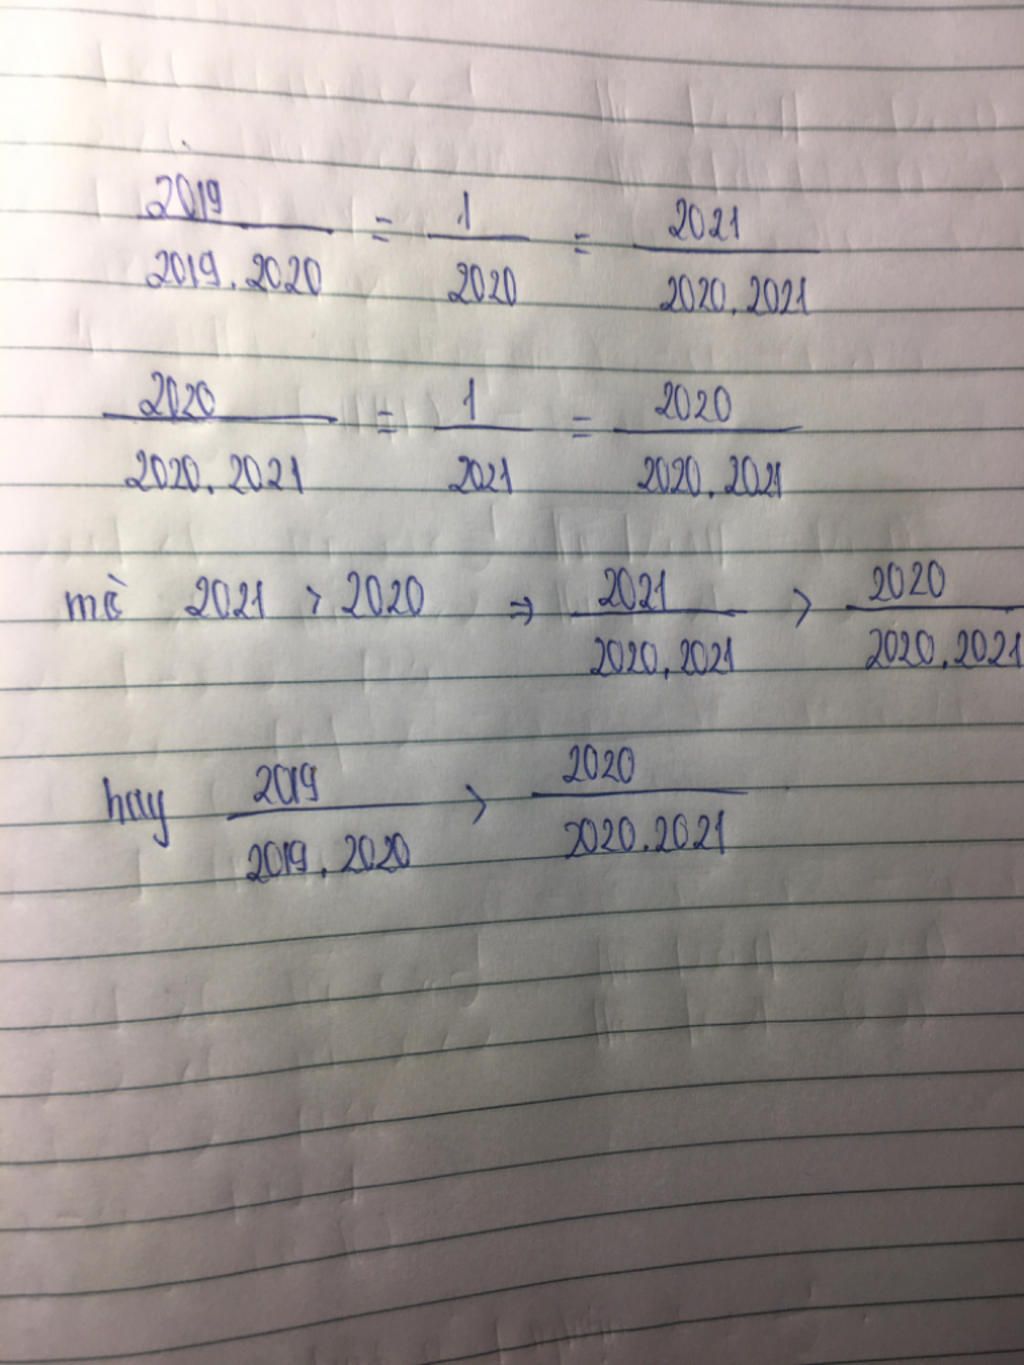 2019 / 2019.2020 = 1 / 2020 = 2021 / 2020.2021
2020 / 2020.2021 = 1 / 2021 = 2020 / 2020.2021
mà 2021 > 2020 ⇒ 2021 / 2020.2021 > 2020 / 2020.2021
hay 2019 / 2019.2020 > 2020 / 2020.2021